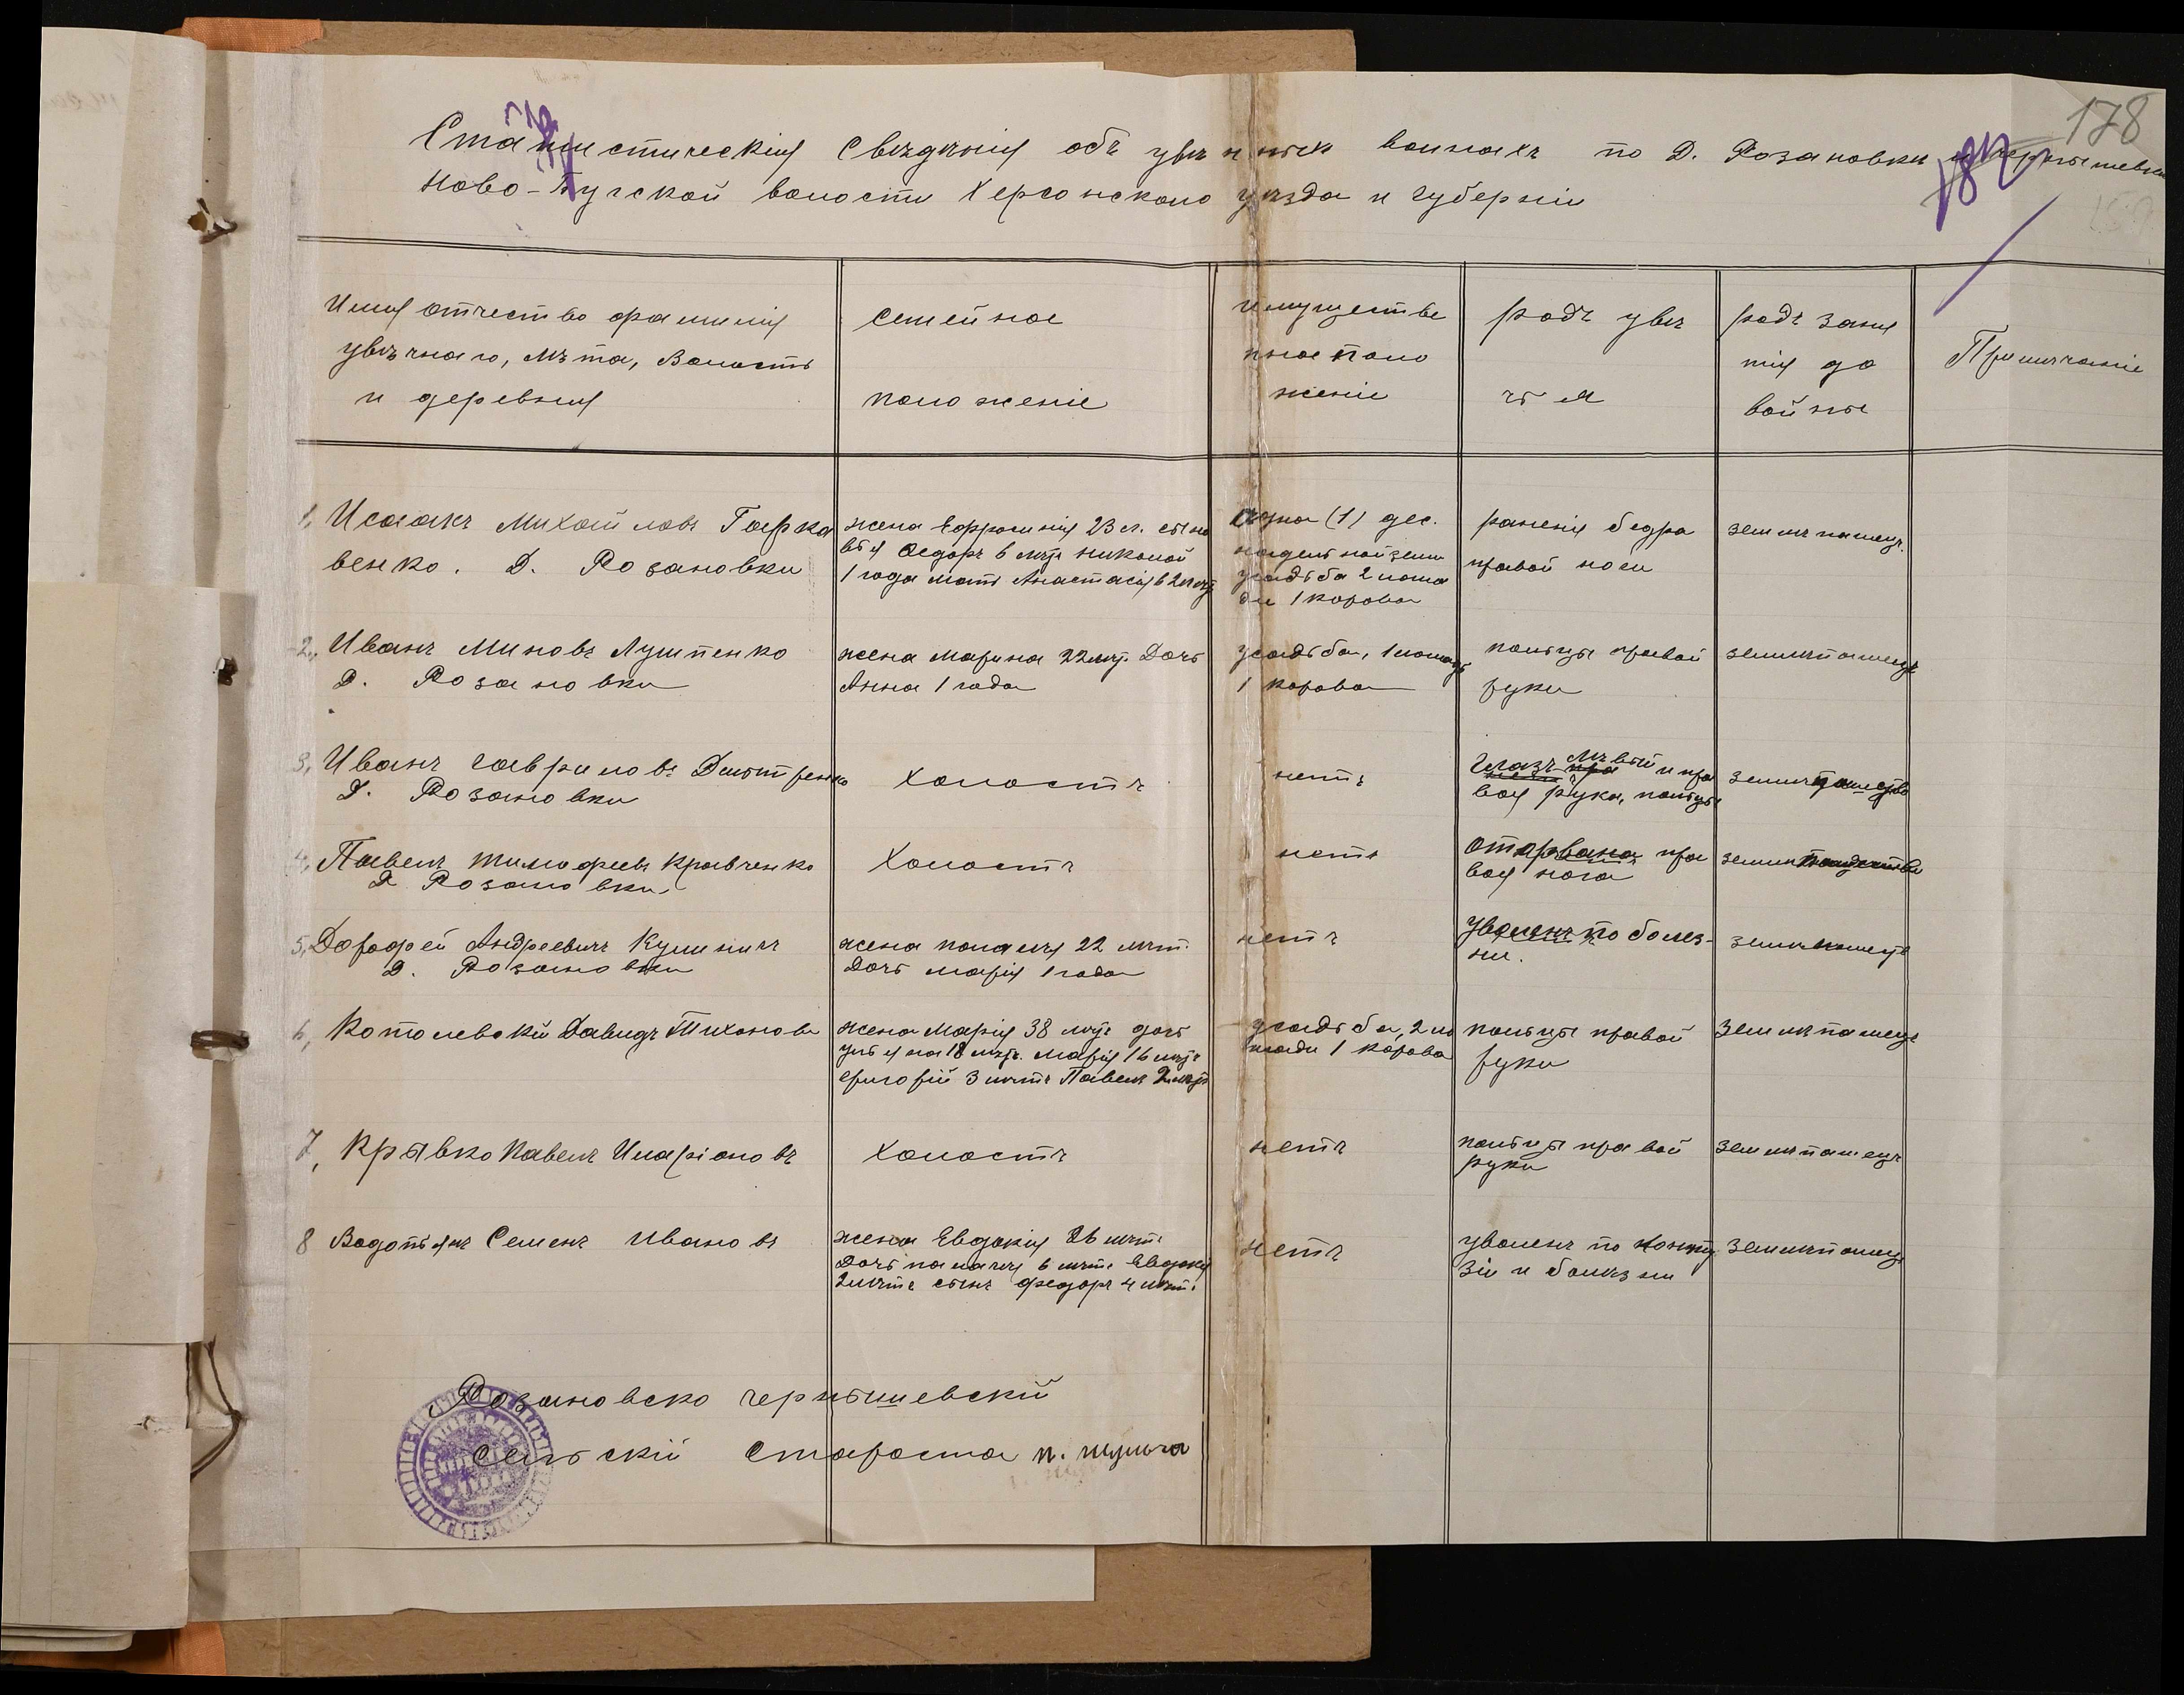 178
Статистическія Свѣденія объ увѣчныхъ воинахъ по Д. Розановки и чернышевки
Ново-Бугской волости Херсонскаго уѣзда и губерніи
182
Имя отчество фамилія
увѣчнаго, лѣта, Волость
и деревня
семейное
положеніе
имуществе
нное поло
женіе
родъ увѣ
чья
родъ заня
тія до
войны
Примѣчаніе
1, Исаакъ Михайловъ Гарка
венко. Д. Розановки
жена Ефросинія 23 л. сыно
вья Ѳедоръ 6 лѣтъ Николай
1 года мать Анастасія 62 лѣтъ
одна (1) дес.
надельной земли
усадьба 2 лоша
ди 1 корова
раненія бедра
правой ноги
землепашецъ
2, Иванъ Миновъ Луштенко
Д. Розановки
жена Марина 22 лѣтъ Дочь
Анна 1 года
усадьба, 1 лошадь
1 корова
пальцы правой
руки
землепашецъ
3, Иванъ гавриловъ Дмытренко
Д. Розановки
холостъ
нетъ
Глазъ лѣвый и пра
вая рука, пальцы
4, Павелъ тимофеевъ Кравченко
Д Розановки
Холостъ
нетъ
оторвана пра
вая нога
5, Дорофей Андреевичъ Кушниръ
Д. Розановки
жена палагея 22 лѣт.
Дочь марія 1 года
нетъ
уволенъ по болез-
ни.
землепашецъ
6, Котолевскій Давидъ Тихоновъ
жена Марія 38 лѣтъ дочь
ульяна 18 лѣтъ. Марія 16 лѣтъ
григорій 3 лѣтъ Павелъ 2 лѣтъ
усадьба, 2 ло
шади 1 корова
пальцы правой
руки
землепашецъ
7, Крявко Павелъ Иларіоновъ
холостъ
нетъ
пальцы правой
руки
землепашецъ
8 Водопьянъ Семенъ Ивановъ
жена Евдокія 26 лѣтъ
Дочь палагея 6 лѣтъ Евдокія
2 лѣтъ сынъ федоръ 4 лѣт.
нетъ
уволенъ по конту
зіи и болѣзни
землепашецъ
Розановско чернышевскій
Сельскій Староста